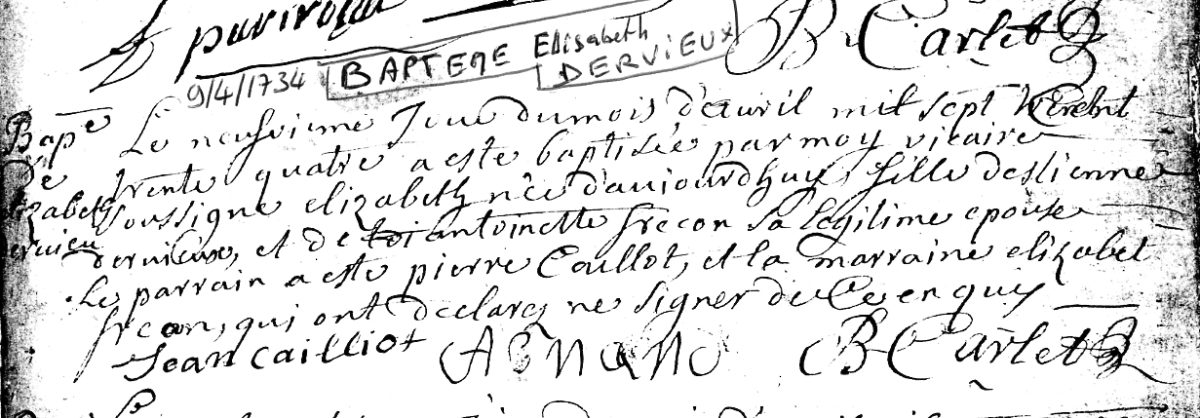 B Carlet
9/4/1734 BAPTEME Elisabeth DERVIEUX
Bap.e Le neufvieme Jour du mois d'auril mil sept Cent
De trente quatre a este baptisée par moy vicaire
elizabeth soussigné elizabeth née d'aujourdhuy, fille destienne
dervieu dervieux, et de antoinette frecon sa legitime epouse
Le parrain a este pierre Caillot, et la marraine elizabet
frecon, qui ont declaré ne signer de Ce enquis
Jean Cailliot B Carlet
Le